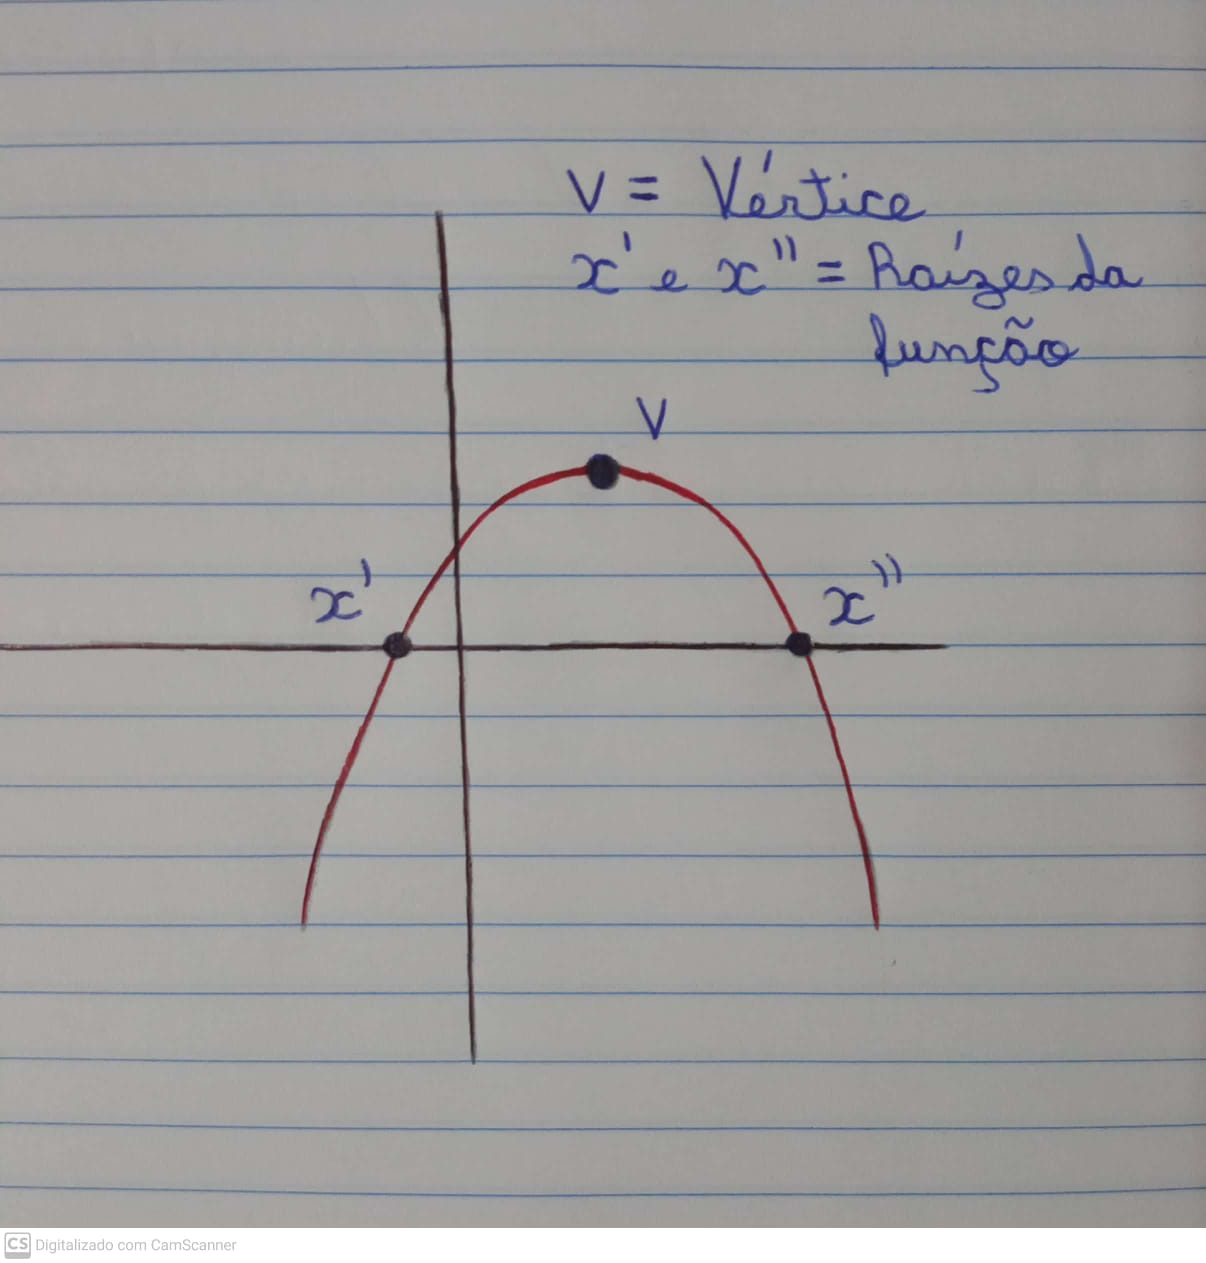 V = Vértice
x' e x'' = Raízes da
função
V
x'
x''
CS Digitalizado com CamScanner